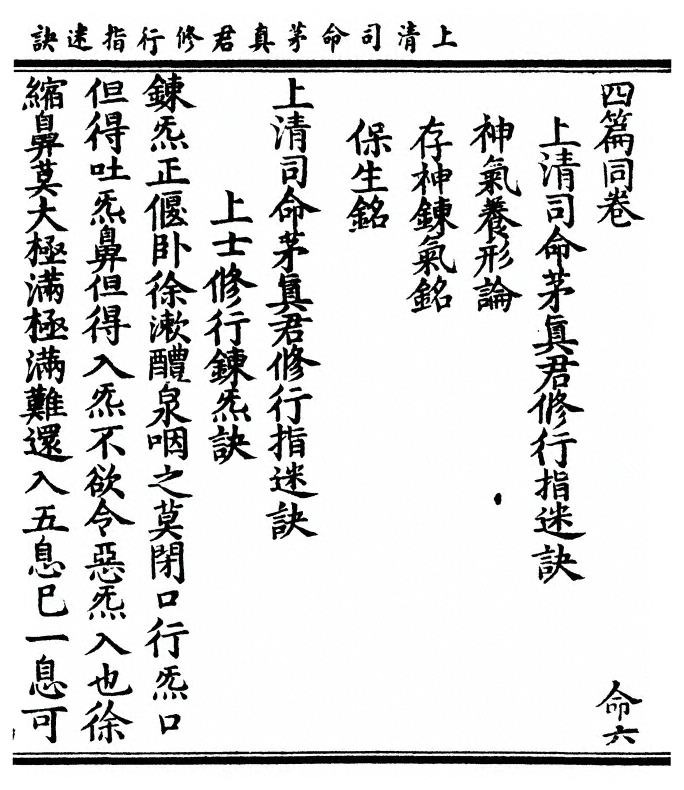 上清司命茅真君修行指迷訣
四篇同卷 命六
上清司命茅真君修行指迷訣
神氣養形論
存神鍊氣銘
保生銘
上清司命茅真君修行指迷訣
上士修行鍊炁訣
鍊炁正偃卧徐漱醴泉咽之莫閉口行炁口
但得吐炁鼻但得入炁不欲令惡炁入也徐
縮鼻莫大極滿極滿難還入五息巳一息可